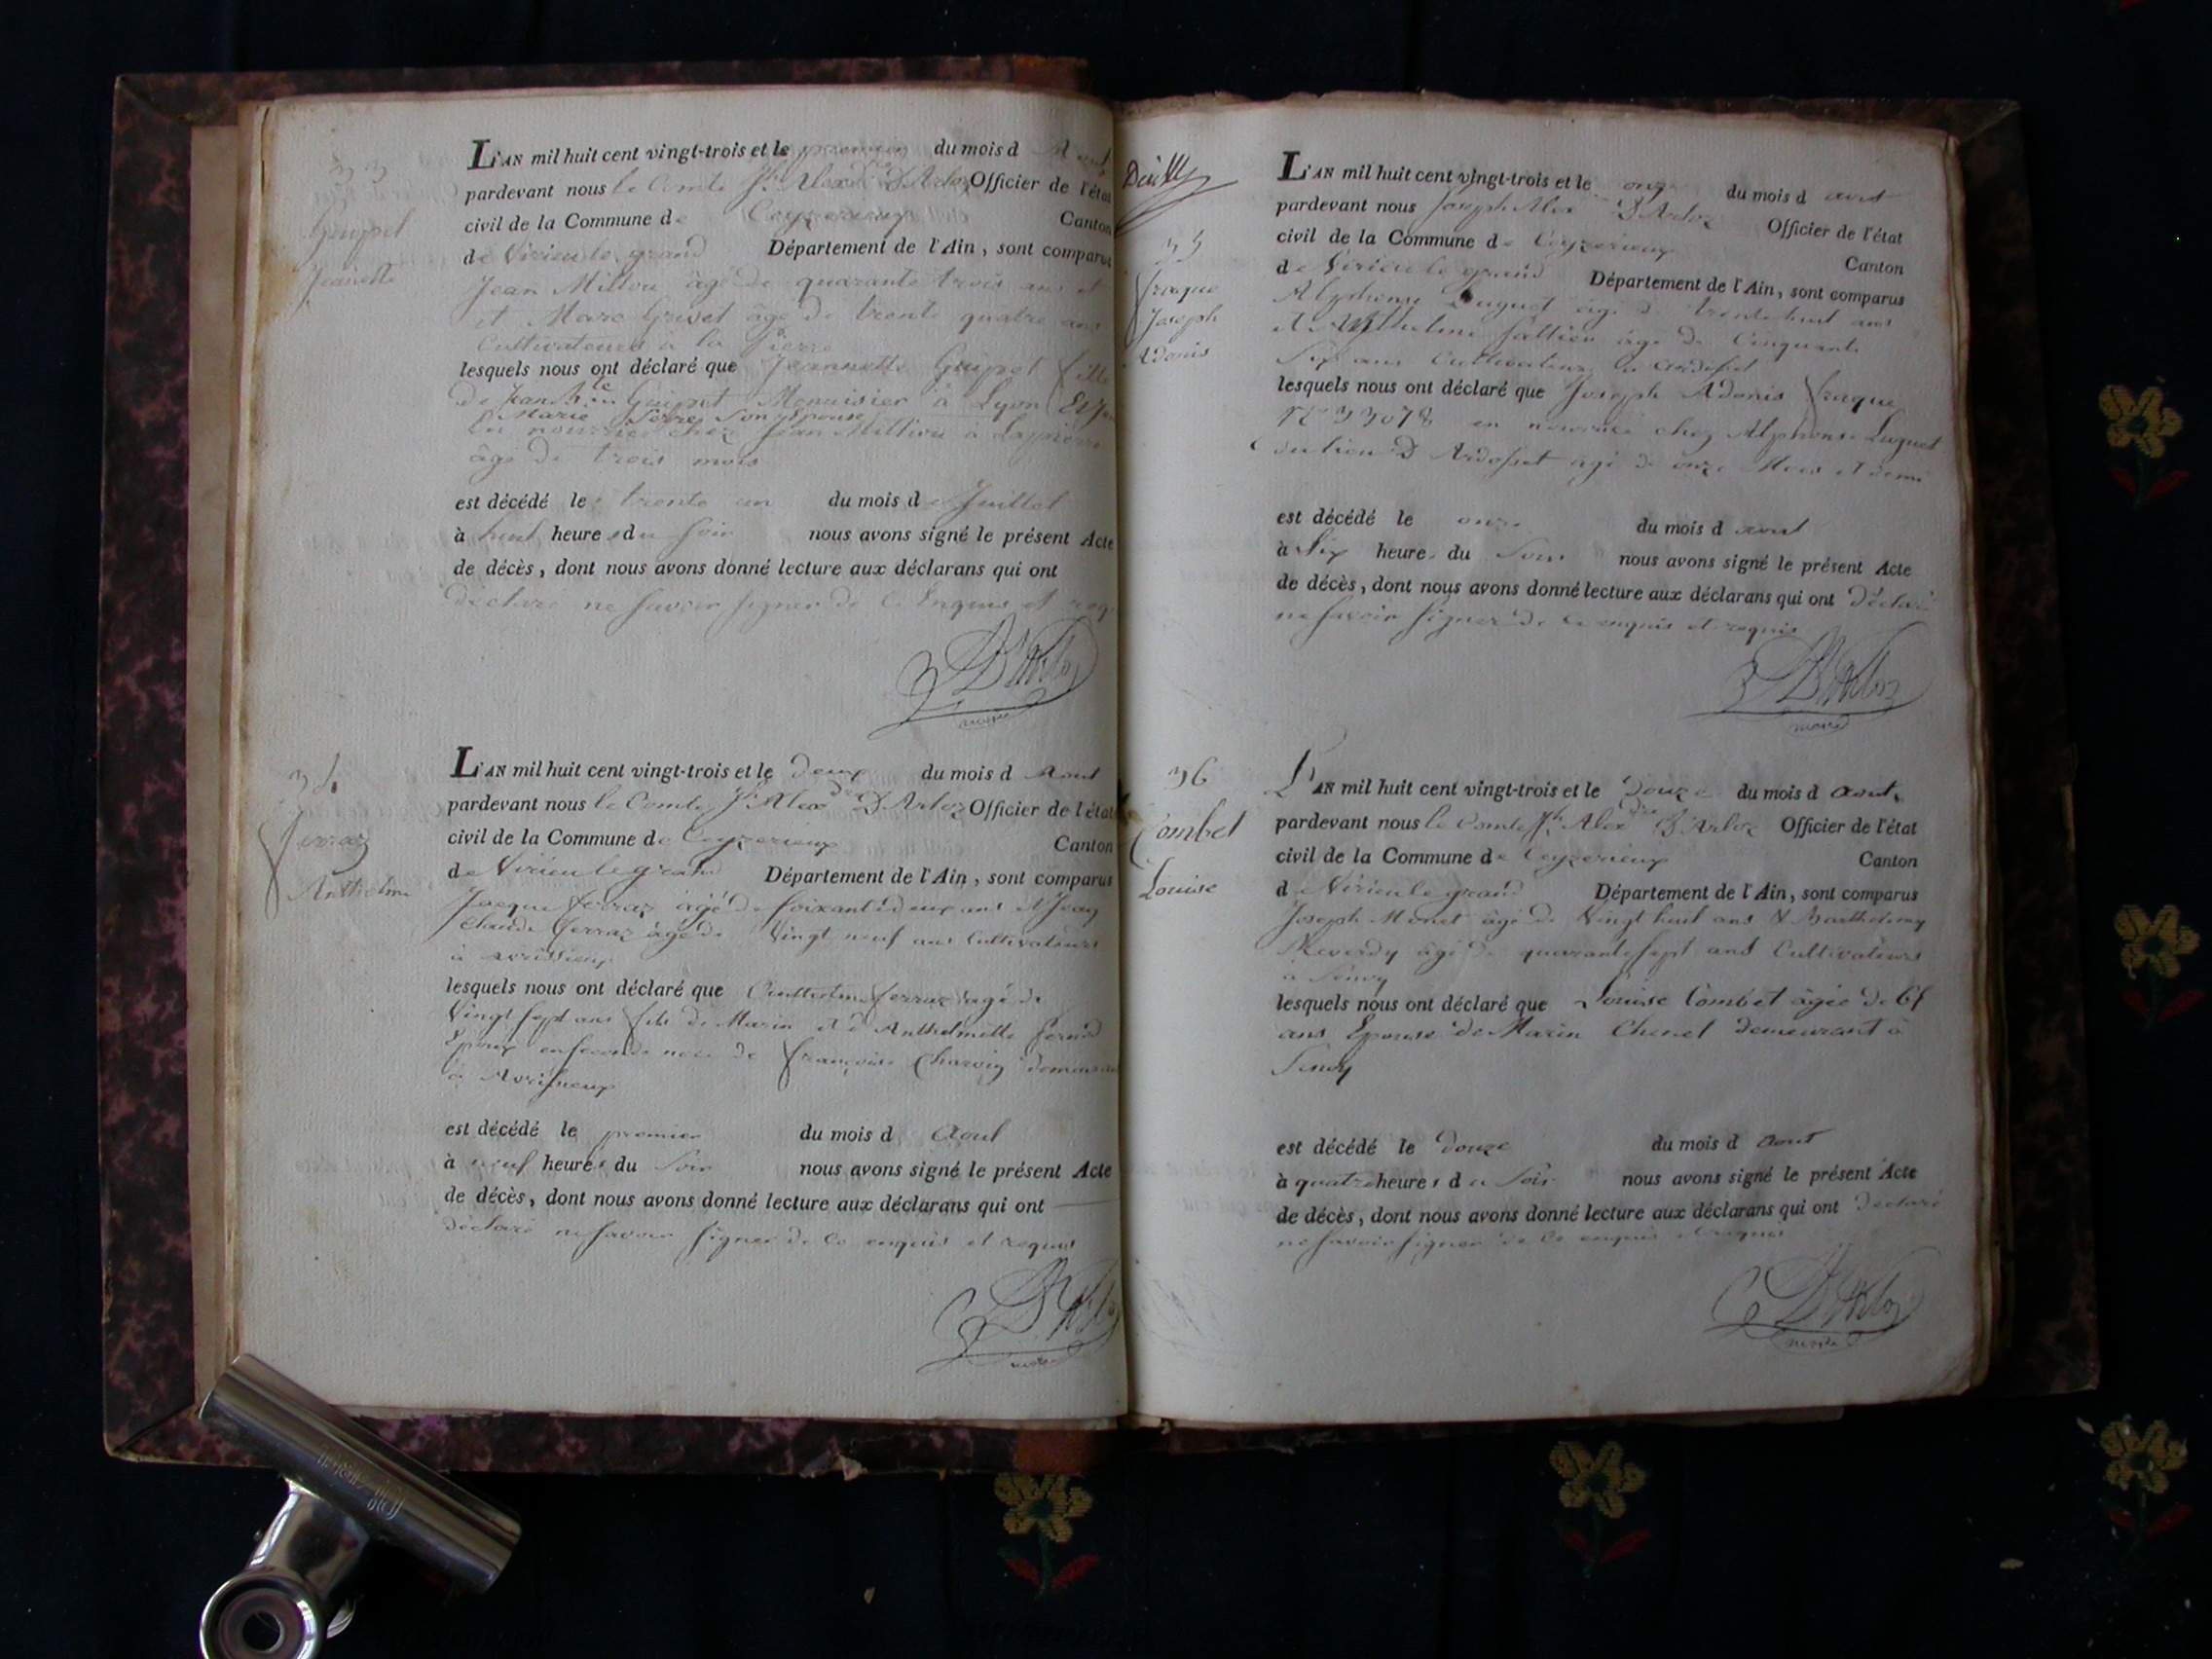 33
Guipet
Jeanette
L'AN mil huit cent vingt-trois et le premier du mois d'Aout
pardevant nous le Comte Jh Alexdre D'Arloz Officier de l'état
civil de la Commune de Ceyzerieux Canton
de Virieu le grand Département de l'Ain, sont comparus
Jean Milliou âgé de quarante trois ans et
et Marc Grivet âgé de trente quatre ans
Cultivateurs à la pierre
lesquels nous ont déclaré que Jeannette Guipet fille
de Jean Guipet Menuisier à Lyon Et
Marie Serre son Epouse
en nourrice chez Jean Milliou à Lapierre
âgé de trois mois
est décédé le trente un du mois de Juillet
à huit heures du soir nous avons signé le présent Acte
de décès, dont nous avons donné lecture aux déclarans qui ont
déclaré ne savoir signer de ce Enquis et req
D'Arloz
maire
34
ferraz
Anthelme
L'AN mil huit cent vingt-trois et le deux du mois d Aout
pardevant nous le Comte Jh Alexdre D'Arloz Officier de l'état
civil de la Commune de Ceyzerieux Canton
de Virieu le grand Département de l'Ain, sont comparus
Jacque ferraz âgé de soixante deux ans et Jean
Claude ferraz âgé de vingt neuf ans Cultivateurs
à avrissieux
lesquels nous ont déclaré que anthelme ferraz âgé de
Vingt sept ans fils de Marin et d'Anthelmette
Epoux en seconde noce de françoise Charvin demeurant
à Avrissieux
est décédé le premier du mois d Aout
à neuf heures du soir nous avons signé le présent Acte
de décès, dont nous avons donné lecture aux déclarans qui ont
déclaré ne savoir signer de ce enquis et requis
D'Arloz
maire
35
fraque
Joseph
Adonis
L'AN mil huit cent vingt-trois et le onze du mois d aout
pardevant nous Joseph Alex D'Arloz Officier de l'état
civil de la Commune de Ceyzerieux Canton
de Virieu le grand Département de l'Ain, sont comparus
Alphonse Luguet âgé de trente huit ans
et Anthelme âgé de Cinquante
Six ans Cultivateurs à ardosset
lesquels nous ont déclaré que Joseph Adonis fraque
N° 33078 en nourrice chez Alphonse Luguet
du lieu D'Ardosset âgé de onze Mois et demi
est décédé le onze du mois d aout
à Six heure du Soir nous avons signé le présent Acte
de décès, dont nous avons donné lecture aux déclarans qui ont déclaré
ne savoir signer de ce enquis et requis
D'Arloz
maire
36
Combet
Louise
L'AN mil huit cent vingt-trois et le Douze du mois d Aout
pardevant nous le Comte Jh Alexdre D'Arloz Officier de l'état
civil de la Commune de Ceyzerieux Canton
de Virieu le grand Département de l'Ain, sont comparus
Joseph Monet âgé de Vingt huit ans & Barthelemy
Reverdy âgé de quarante sept ans Cultivateurs
à Senoy
lesquels nous ont déclaré que Louise Combet âgée de
ans Epouse de Marin Chenel demeurant à
Senoy
est décédé le douze du mois d Aout
à quatre heures du Soir nous avons signé le présent Acte
de décès, dont nous avons donné lecture aux déclarans qui ont declaré
ne savoir signer de ce enquis et requis
D'Arloz
maire